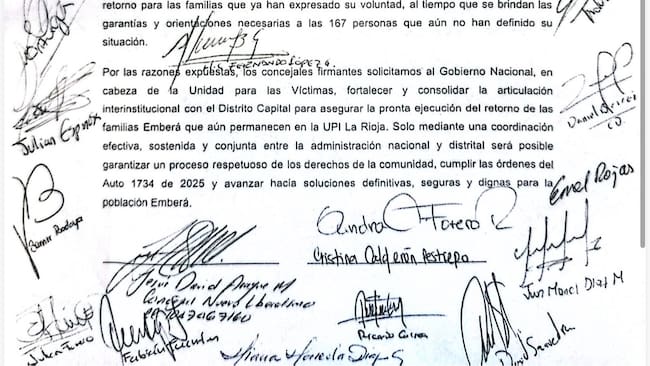 retorno para las familias que ya han expresado su voluntad, al tiempo que se brindan las
garantías y orientaciones necesarias a las 167 personas que aún no han definido su
situación.
Por las razones expuestas, los concejales firmantes solicitamos al Gobierno Nacional, en
cabeza de la Unidad para las Víctimas, fortalecer y consolidar la articulación
interinstitucional con el Distrito Capital para asegurar la pronta ejecución del retorno de las
familias Emberá que aún permanecen en la UPI La Rioja. Solo mediante una coordinación
efectiva, sostenida y conjunta entre la administración nacional y distrital será posible
garantizar un proceso respetuoso de los derechos de la comunidad, cumplir las órdenes del
Auto 1734 de 2025 y avanzar hacia soluciones definitivas, seguras y dignas para la
población Emberá.
Julian
Rojas
Forero R
Cristina Calderón Restrepo
David
Juan Manuel Diaz M
Fabián
Ricardo
Diana
David